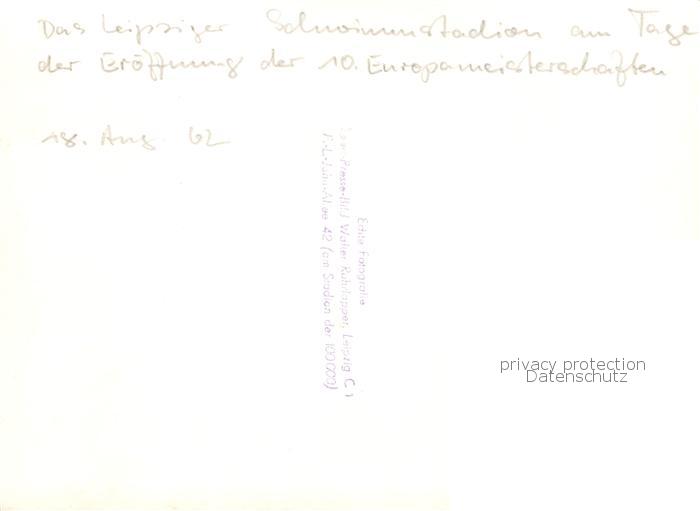 Das Leipziger Schwimmstadion am Tage
der Eröffnung der 10. Europameisterschaften
18. Aug. 62
Echte Fotografie
Walter Leipzig C 1
42 (am Stadion der 100000)
privacy protection
Datenschutz